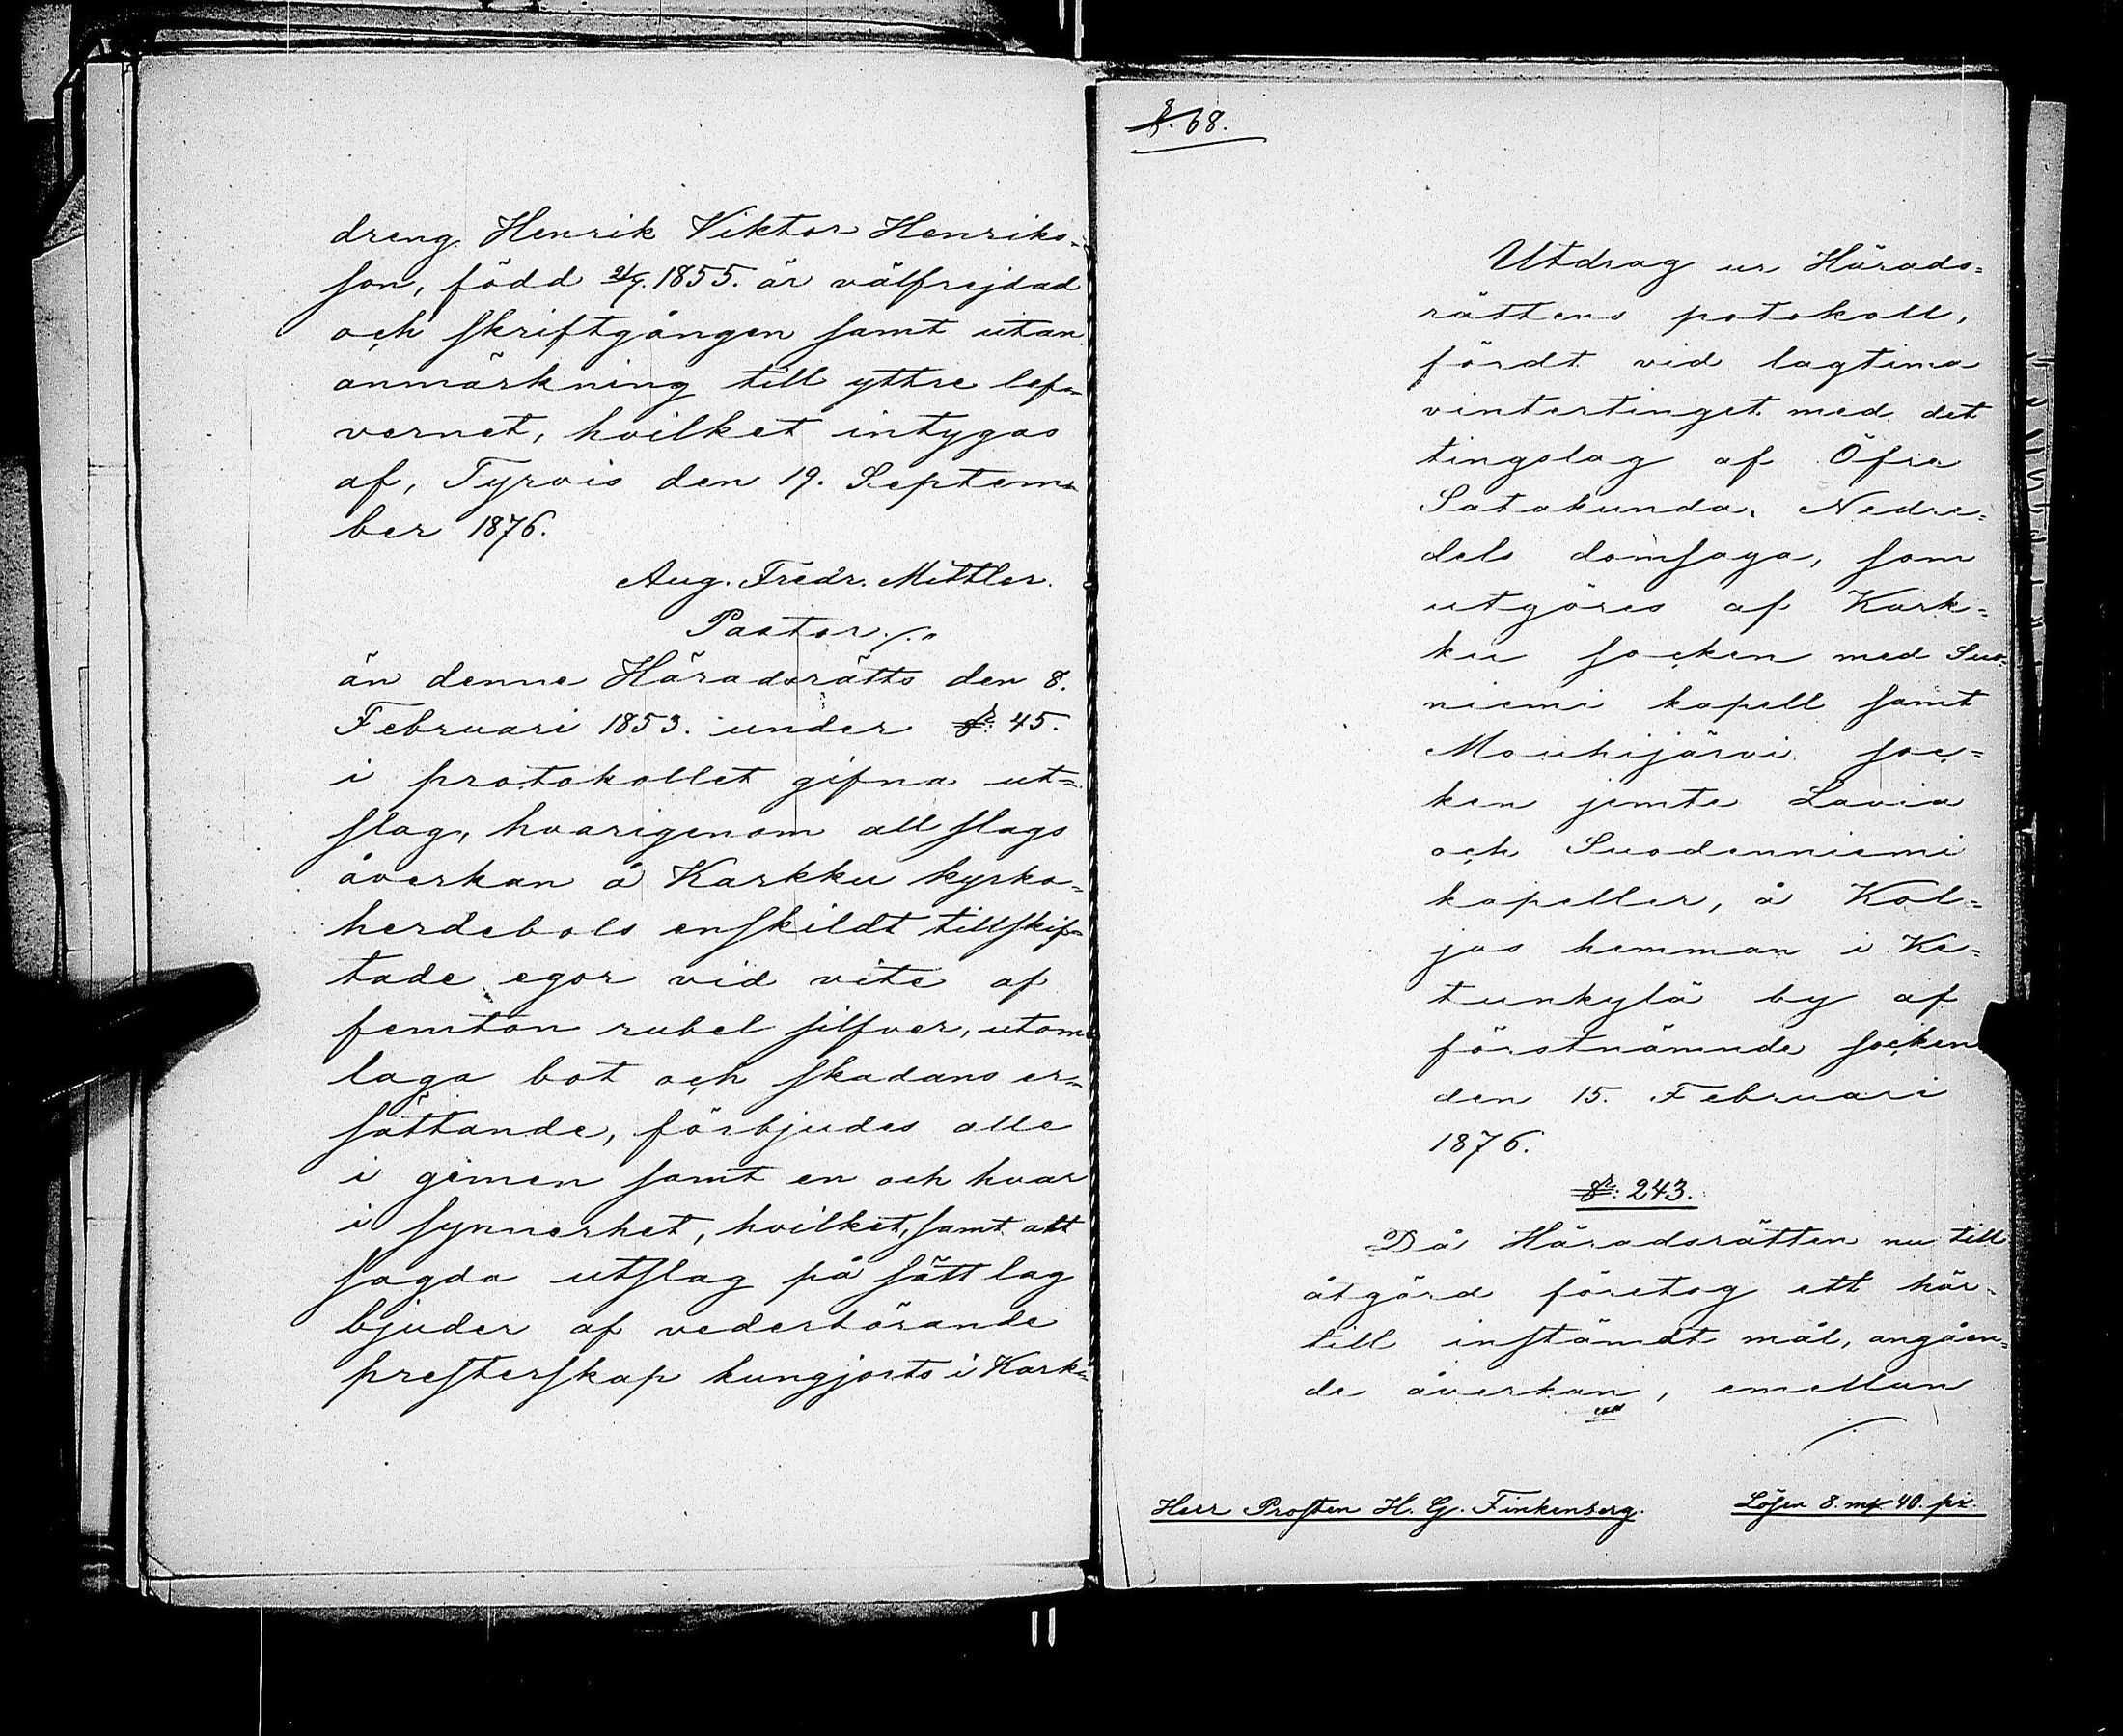 dreng Henrik Viktor Henriks-
son, född 21/7. 1855. är välfrejdad
och skriftgången samt utan
anmärkning till yttre lef-
vernet, hvilket intygas
af, Tyrvis den 19. Septem-
ber 1876.
Aug. Fredr. Mittler.
Pastor./."
än denne Häradsrätts den 8.
Februari 1853. under §: 45.
i protokollet gifna ut-
slag, hvarigenom all slags
åverkan å Karkku kyrko-
herdebols enskildt tillskif-
tade egor vid vite af
femton rubel silfver, utom
laga bot och skadans er-
sättande, förbjudes alle
i gemen samt en och hvar
i synnerhet, hvilket, samt att
sagda utslag på sätt lag
bjuder af vederbörande
presterskap kungjorts i Kark-
§. 68.
Utdrag ur Härads-
rättens potokoll,
fördt vid lagtima
vintertinget med det
tingslag af Öfre
Satakunda, Nedre-
dels domsaga, som
utgöres af Kark-
ku socken med Suo-
niemi kapell samt
Mouhijärvi soc-
ken jemte Lavia
och Suodenniemi
kapeller, å Kol-
jas hemman i Ke-
tunkylä by af
förstnämnde socken
den 15. Februari
1876.
§: 243.
Då Häradsrätten nu till
åtgörd företog ett här-
till instämdt mål, angåen-
de åverkan, emellan
Herr Prosten H. G. Finkenberg. Lösen 8. mf 40. pi.